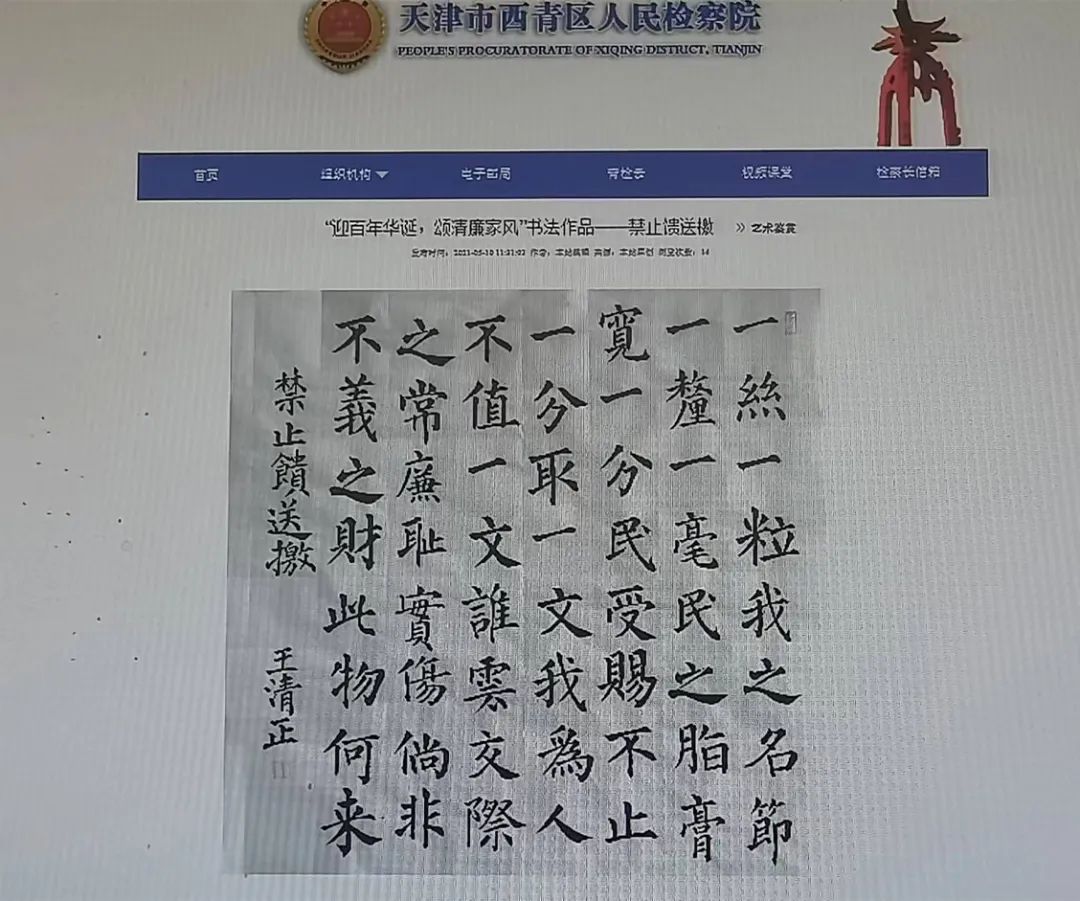 天津市西青区人民检察院
PEOPLE'S PROCURATORATE OF XIQING DISTRICT, TIANJIN
首页 组织机构 视频课堂 检察长信箱
“迎百年华诞，颂清廉家风”书法作品——禁止馈送檄 » 艺术鉴赏
发布时间：2021-05-10 作者：本站编辑 来源：本站原创 浏览次数：14
一絲一粒我之名節
一釐一毫民之脂膏
寬一分民受賜不止
一分取一文我爲人
不值一文誰雲交際
之常廉耻實傷倘非
不義之財此物何来
禁止饋送檄 王清正